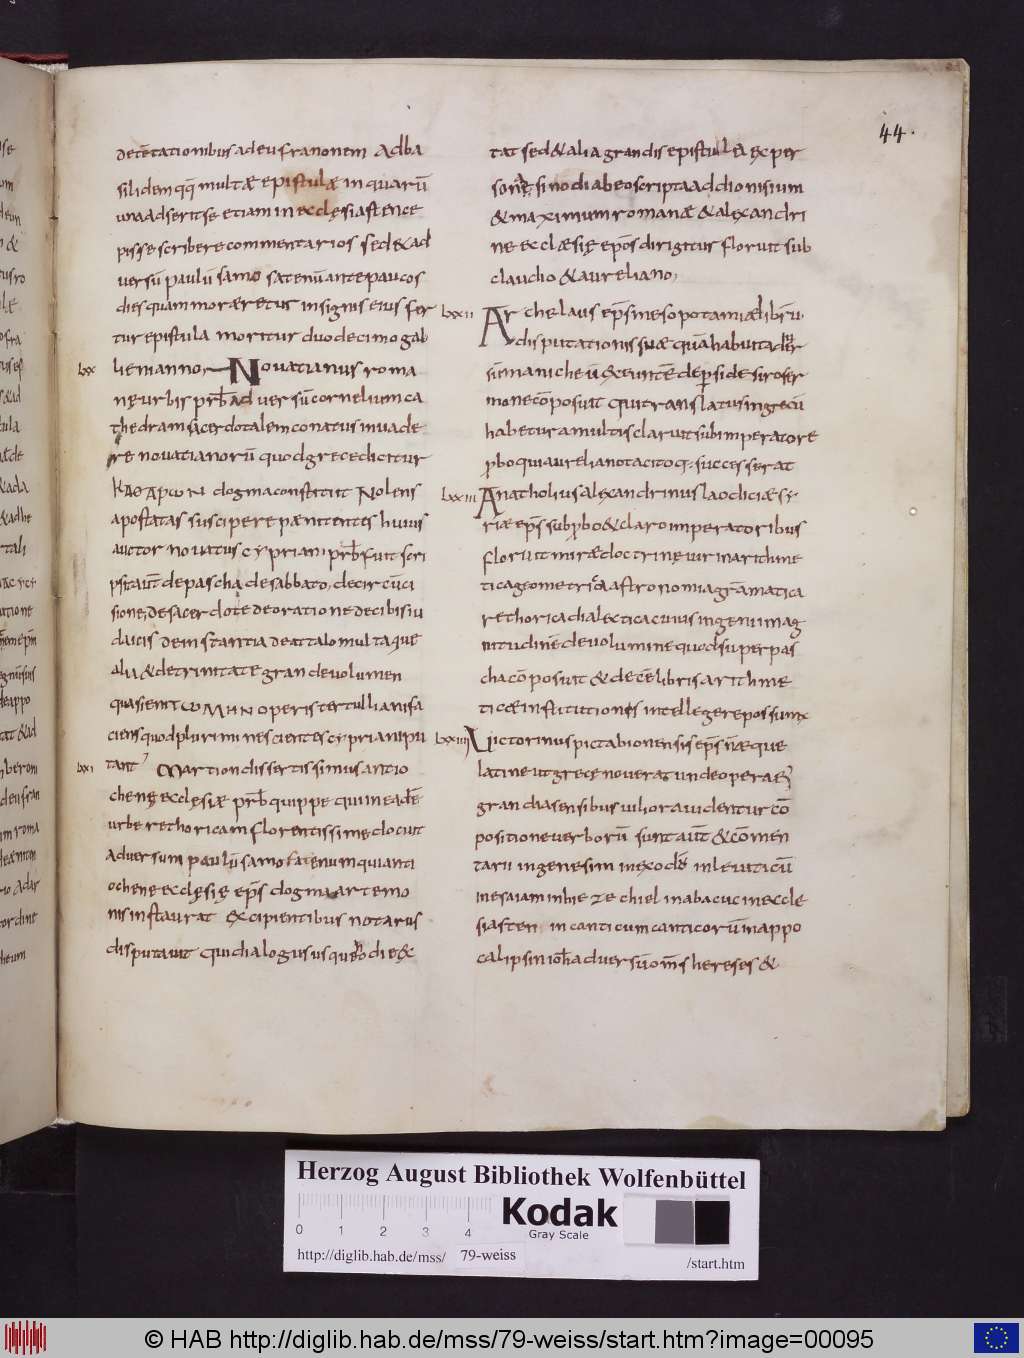 44.
de tētationibus ad eufranonem Adba
silidem qq̄ multæ epistulæ in quarū
una adserit se etiam in ecclęsiasten ce
pisse scribere commentarios sed & ad
versū paulū samosatenū ante paucos
dies quam moræretur insignis eius fer
tur epistula moritur duodecimo gal
lxx lieni anno Novatianus roma
nę urbis prb̄ adversū cornelium ca
thedram sacerdotalem conatus invade
re novatianorū quod grece dicitur
ΚΑΘΑΡωΝ dogma constituit Nolens
apostatas suscipere pænitentes huius
auctor novatus cypriani prb̄ fuit scri
psit aut̄ de pascha de sabbato, de circūci
sione, de sacerdote de oratione de cibis iu
daicis de instantia de attalo multaque
alia & de trinitate grande volumen
quasi ΕΠΙΤωΜΗΝ operis tertulliani fa
ciens quod plurimi nescientes cypriani pu
lxxi tant Martion disertissimus antio
chenę ecclęsiæ prb̄ quippe qui in eadē
urbe rethoricam florentissime docuit
Adversum paulū samosatenum qui anti
ochene ecclęsię ep̄s dogma artemo
nis instaurat excipientibus notarus
disputavit qui dialogus usque hodie ex
tat sed & alia grandis epistula ex per
sona sinodi ab eo scripta ad dionisium
& maximum romanæ & alexandri
ne ecclæsię ep̄os dirigitur floruit sub
claudio & aureliano;
lxxii Archelaus ep̄s mesopotamiæ librū
disputationis suæ quā habuit ader
sū manicheū exeuntē de perside siro ser
mone cōposuit qui translatus in grecū
habetur a multis claruit sub imperatore
probo qui aureliano tacitoq; successerat
lxxiii Anatholius alexandrinus laodiciæ sy
riæ ep̄s sub probo & claro imperatoribus
floruit miræ doctrinę vir in arithme
tica geometrica astronomia grāmatica
rethorica dialectica cuius ingenii mag
nitudinē de volumine quod super pas
cha cōposuit & decē libris arithme
ticæ institutiones intellegere possum;
lxxiiii Victorinus pictabionensis ep̄s n̄ æque
latine ut grece noverat unde opera ei;
grandia sensibus viliora videntur cō
positione verborū sunt aut̄ & cōmen
tarii in genesim in exodū in leviticū
in esaiam in hiezechiel in abacuc in eccle
siasten in canticum canticorū in appo
calipsin ioh̄ adversū om̄s hereses &
Herzog August Bibliothek Wolfenbüttel
0 1 2 3 4
Kodak
Gray Scale
http://diglib.hab.de/mss/ 79-weiss /start.htm
© HAB http://diglib.hab.de/mss/79-weiss/start.htm?image=00095